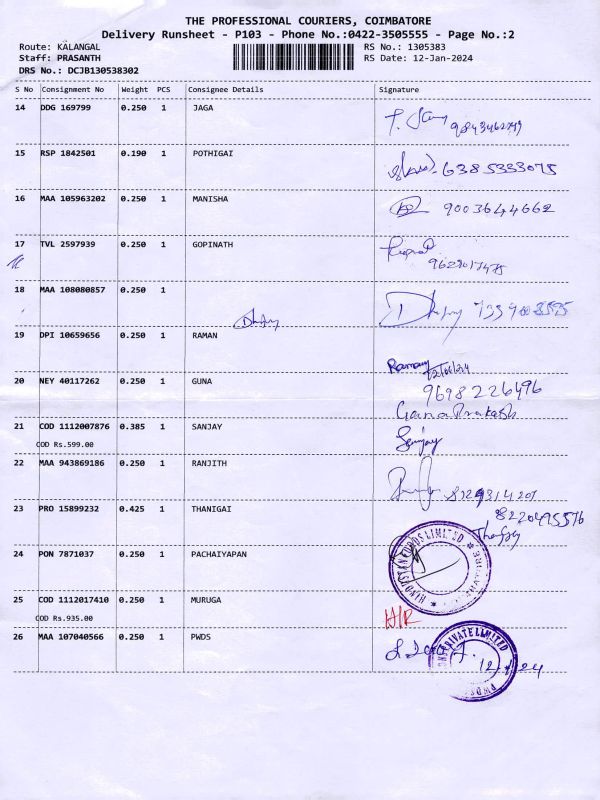 THE PROFESSIONAL COURIERS, COIMBATORE
Delivery Runsheet - P103 - Phone No.:0422-3505555 - Page No.:2
Route: KALANGAL
RS No.: 1305383
Staff: PRASANTH
RS Date: 12-Jan-2024
DRS No.: DCJB130538302
S No Consignment No Weight PCS Consignee Details Signature
14 DDG 169799 0.250 1 JAGA
15 RSP 1842501 0.190 1 POTHIGAI
6385333075
16 MAA 105963202 0.250 1 MANISHA
9003644662
17 TVL 2597939 0.250 1 GOPINATH
18 MAA 108080857 0.250 1
19 DPI 10659656 0.250 1 RAMAN
Raman
20 NEY 40117262 0.250 1 GUNA
9698226496
Gana Prakash
21 COD 1112007876 0.385 1 SANJAY
Sanjay
COD Rs.599.00
22 MAA 943869186 0.250 1 RANJITH
23 PRO 15899232 0.425 1 THANIGAI
8220495576
24 PON 7871037 0.250 1 PACHAIYAPAN
25 COD 1112017410 0.250 1 MURUGA
COD Rs.935.00
26 MAA 107040566 0.250 1 PWDS
PRIVATE LIMITED
PWDS